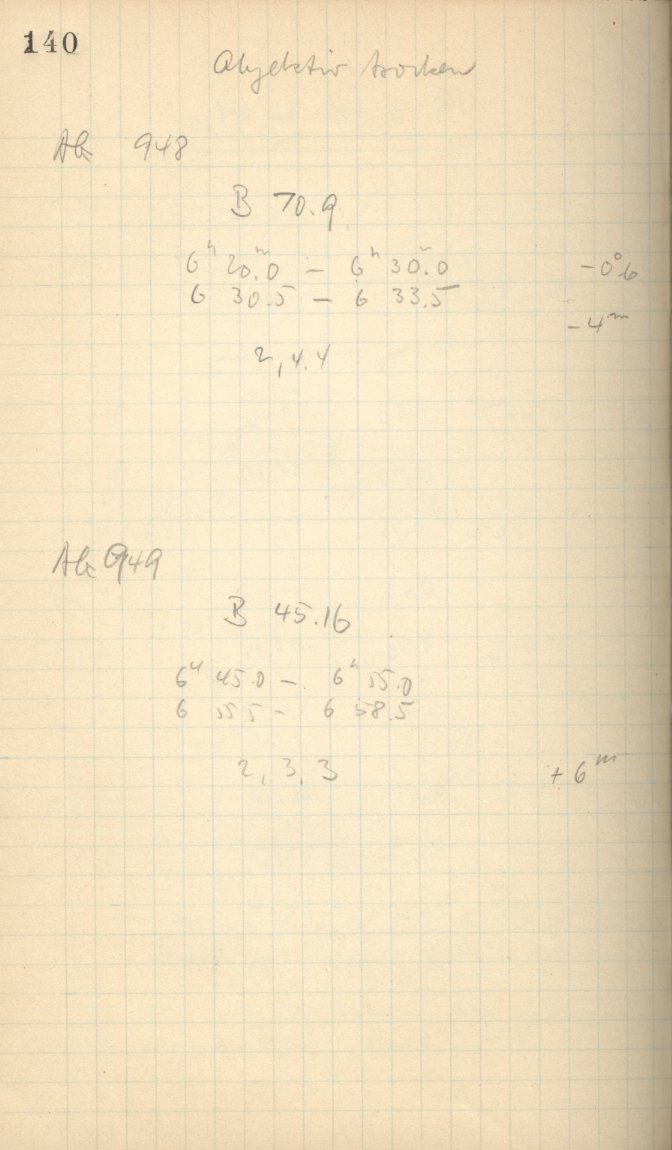 140
Objektiv trocken
Ab 948
B 70.9
6ʰ 20ᵐ.0 – 6ʰ 30ᵐ.0 -0°.6
6 30.5 – 6 33.5
-4ᵐ
2, 4.4
Ab 949
B 45.16
6ʰ 45.0 – 6ʰ 55.0
6 55.5 - 6 58.5
2, 3, 3 +6ᵐ